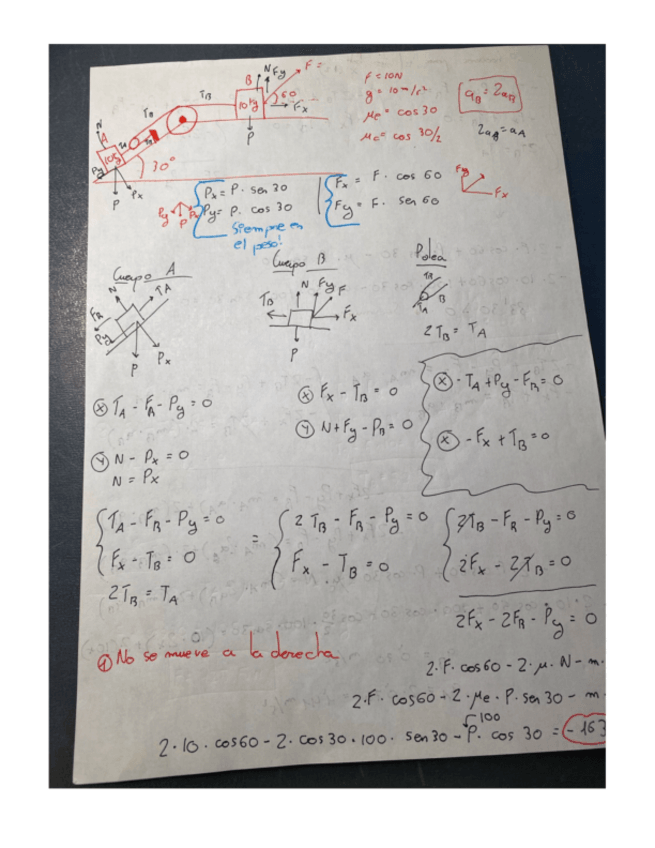 N Fy F =
B
TB
10kg 60 Fx
P
F = 10N
g = 10 m/s²
μe = cos 30
μc = cos 30/2
aB = 2aA
N
A
10kg
Py
P
Px
30°
Px = P · sen 30
Py = P. cos 30
Siempre en
el peso!
Py P Px
Fx = F · cos 60
Fy = F. sen 60
Fy
Fx
Cuerpo A
N TA
FR
Py
P Px
Cuerpo B
N Fy F
TB Fx
P
Polea
TB
TA B
2TB = TA
ⓧ TA - FR - Py = 0
ⓨ N - Px = 0
N = Px
ⓧ Fx - TB = 0
ⓨ N + Fy - PB = 0
ⓧ - TA + Py - FR = 0
ⓧ - Fx + TB = 0
TA - FR - Py = 0
Fx - TB = 0
2TB = TA
=
2 TB - FR - Py = 0
Fx - TB = 0
2TB - FR - Py = 0
2Fx - 2TB = 0
2Fx - 2FR - Py = 0
① No se mueve a la derecha
2 · F. cos60 - 2 · μ. N - m.
2 · F. cos60 - 2 · μe · P. sen 30 - m
100
2 · 10 · cos60 - 2 · cos 30 · 100 · sen 30 - P. cos 30 = - 163